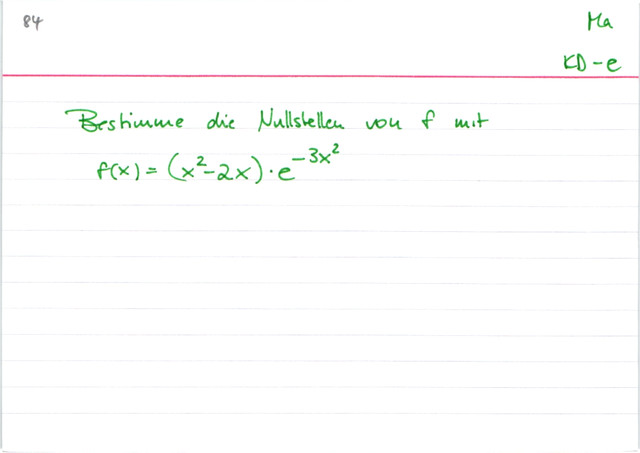 84
Ma
KD-e
Bestimme die Nullstellen von f mit
f(x) = (x²-2x)·e^-3x²